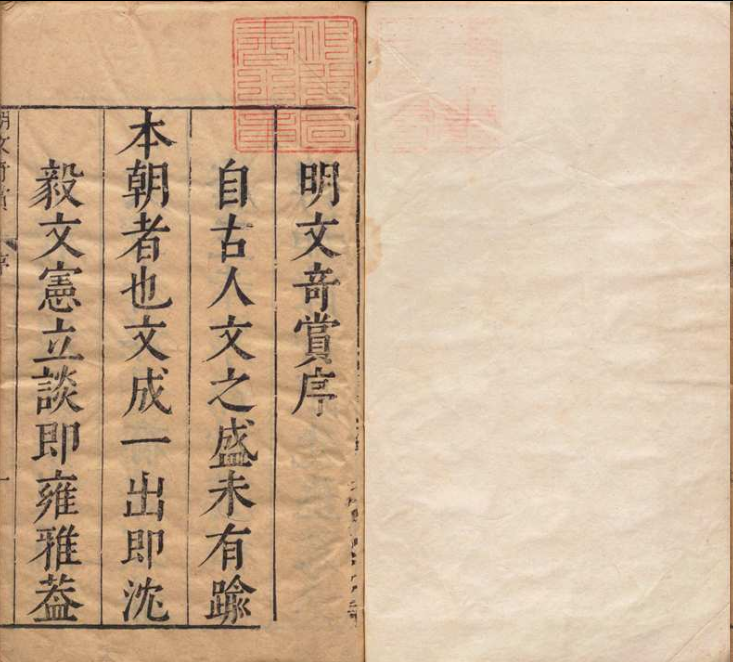 明文竒賞序
自古人文之盛未有踰
本朝者也文成一出即沈
毅文憲立談即雍雅葢